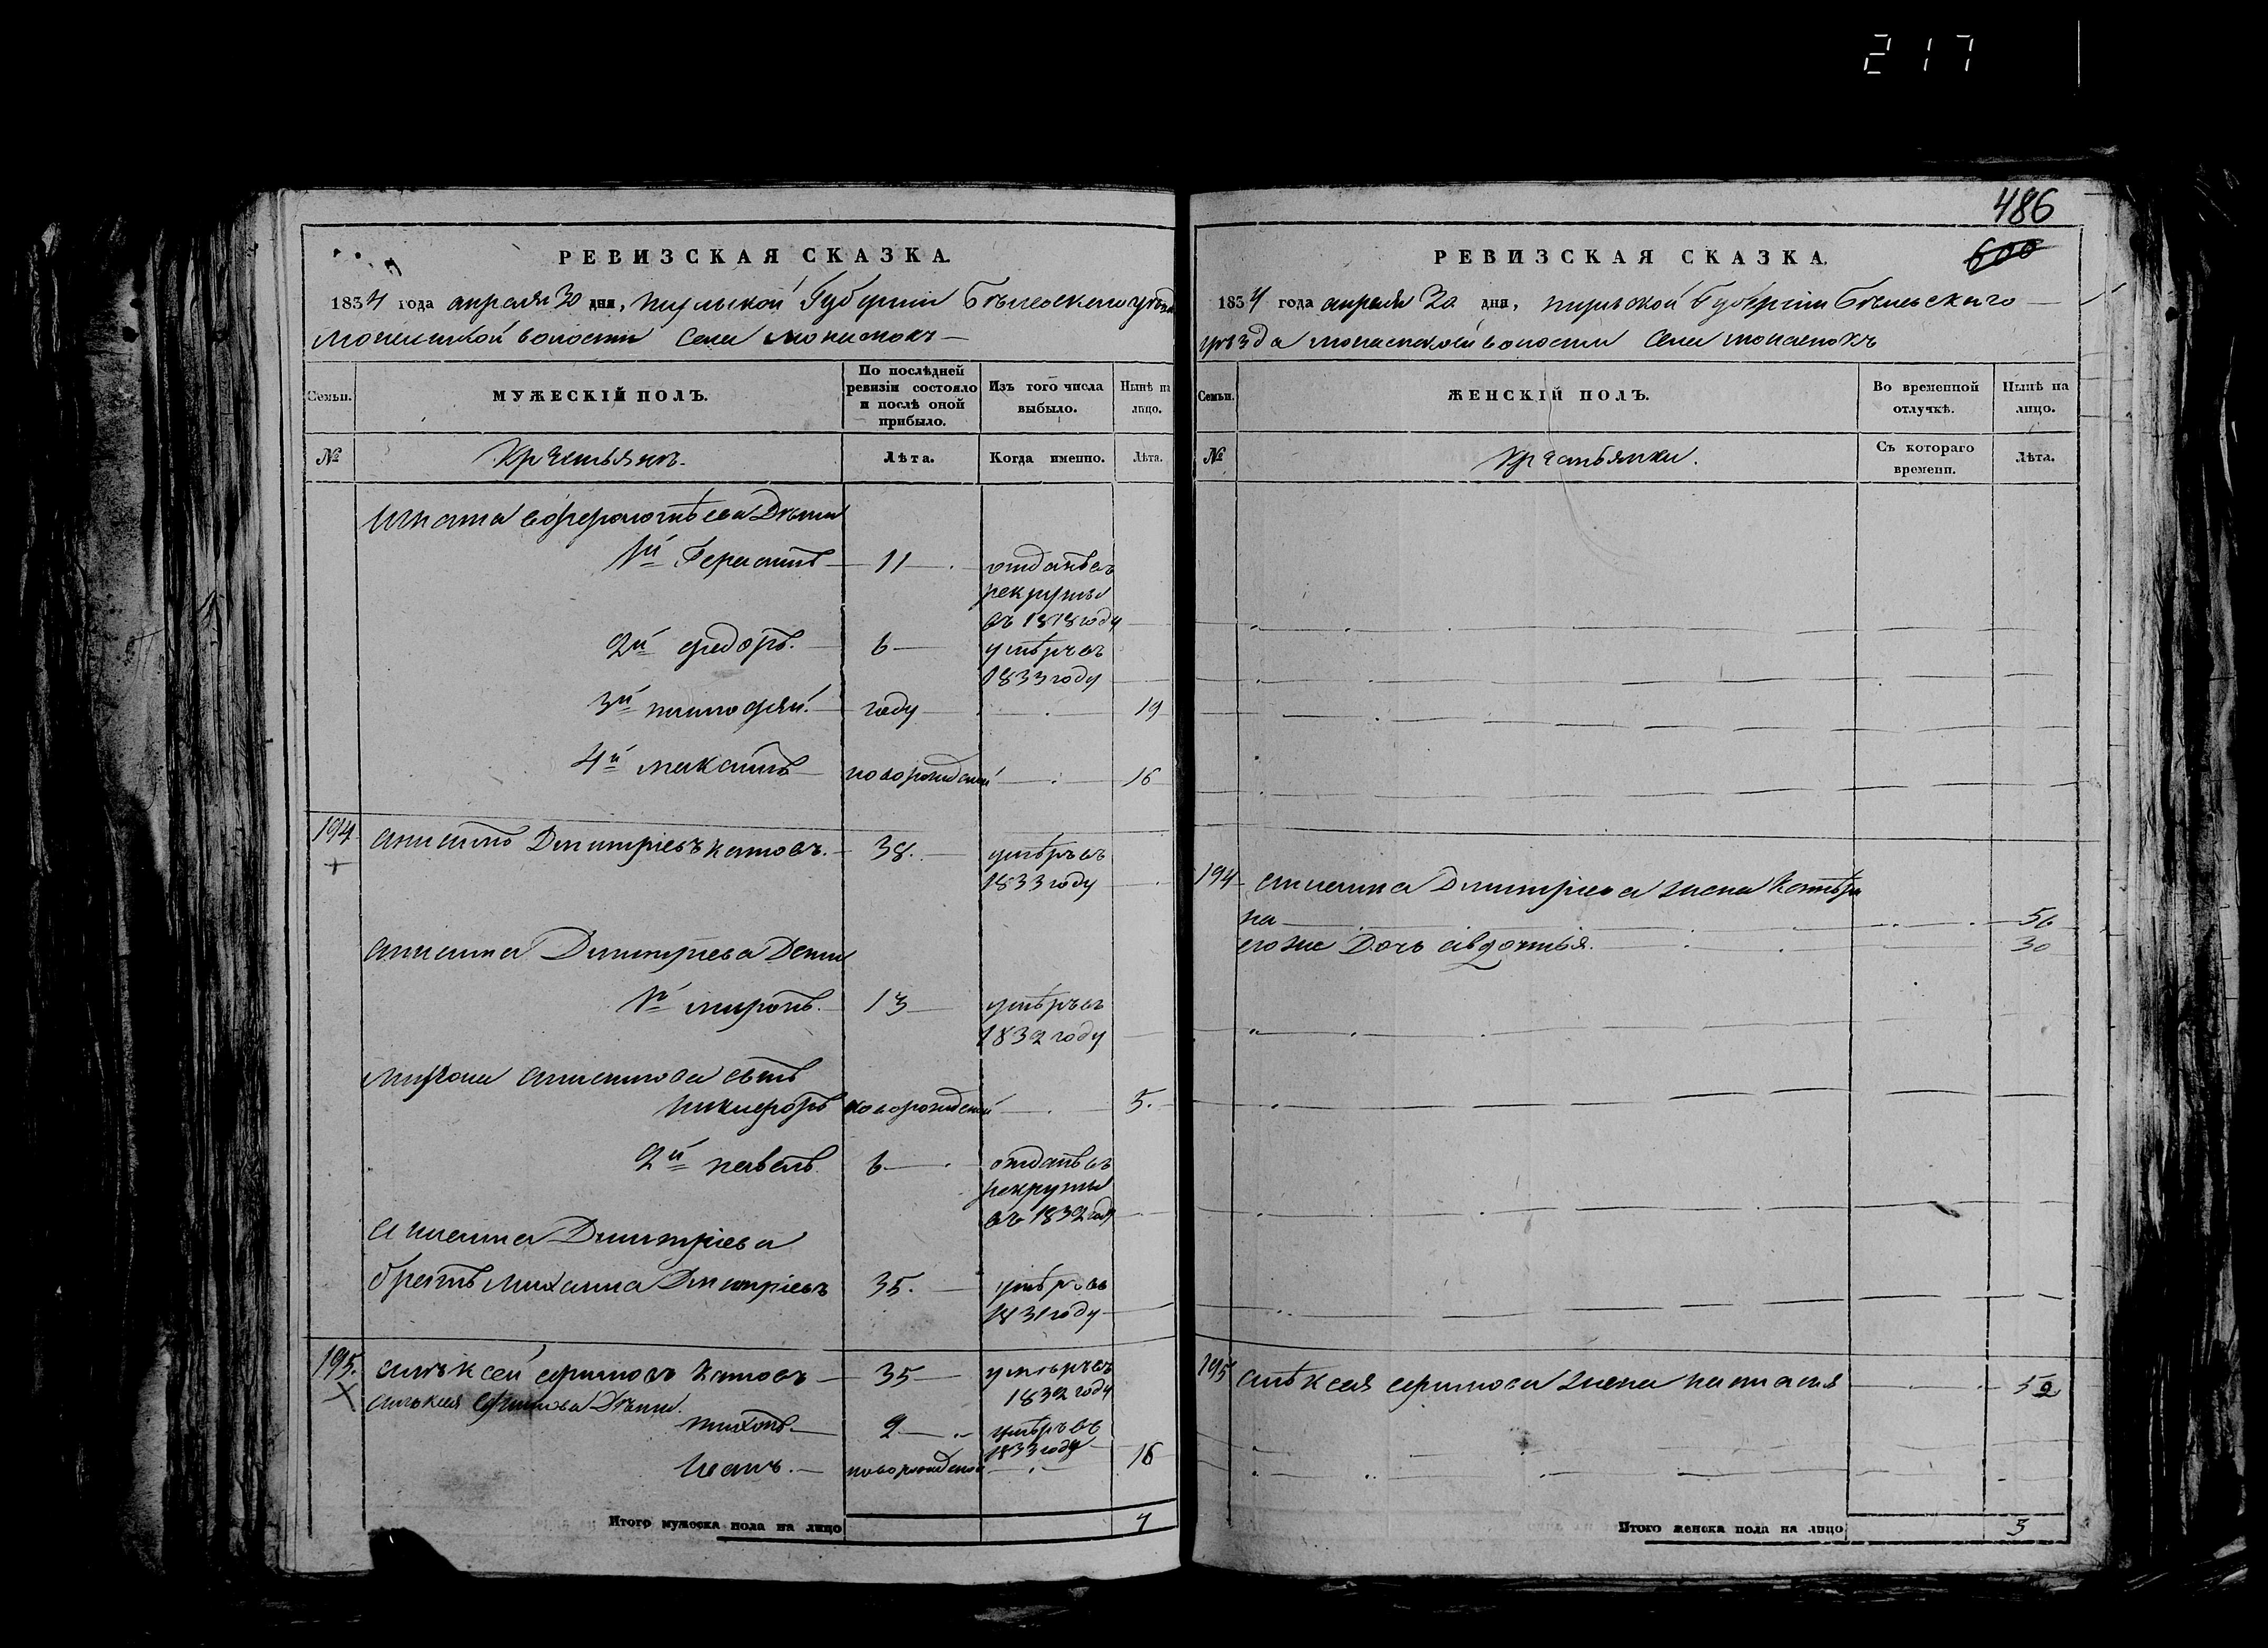 217
486
600
РЕВИЗСКАЯ СКАЗКА.
1834 года апреля 30 дня, Губернии уезда
волости Села
Семьи.
МУЖЕСКІЙ ПОЛЪ.
По послѣдней ревизіи состояло и послѣ оной прибыло.
Изъ того числа выбыло.
Нынѣ на лицо.
№
Крестьянъ.
Лѣта.
Когда именно.
Лѣта.
Дѣти
1й Герасимъ 11 отданъ въ
рекруты
въ 1818 году
2й Федоръ. 6 умѣръ въ
1833 году
3й тимофѣй. году 19
4й максимъ новорожденый 16
194 Анисимъ Дмитріевъ катовъ. 38. умѣръ въ
1833 году
Анисима Дмитріева Дети
1й миронъ. 13 умѣръ въ
1832 году
Мирона Анисимова сынъ
никифоръ новорожденый 5.
2й павелъ 6 отданъ въ
рекруты
въ 1832 году
Анисима Дмитріева
братъ Михаила Дмитріевъ 35. умѣръ въ
1831 году
195. Алѣксей ефимовъ катовъ 35 умѣръ въ
1832 году
Алѣксея Ефимова Дѣти.
тихонъ. 2 умѣръ въ
1833 году
Иванъ. новорожденой 16
Итого мужеска пола на лицо 4
РЕВИЗСКАЯ СКАЗКА.
1834 года апреля 30 дня, Губерніи
уѣзда волости Села
Семьи.
ЖЕНСКІЙ ПОЛЪ.
Во временной отлучкѣ.
Нынѣ на лицо.
№
Крестьянки.
Съ котораго времени.
Лѣта.
194 Анисима Дмитріева жена Катѣри
на 56
его же Дочь авдотья. 30
195 Алѣксея ефимова жена наталія 52
Итого женска пола на лицо 3